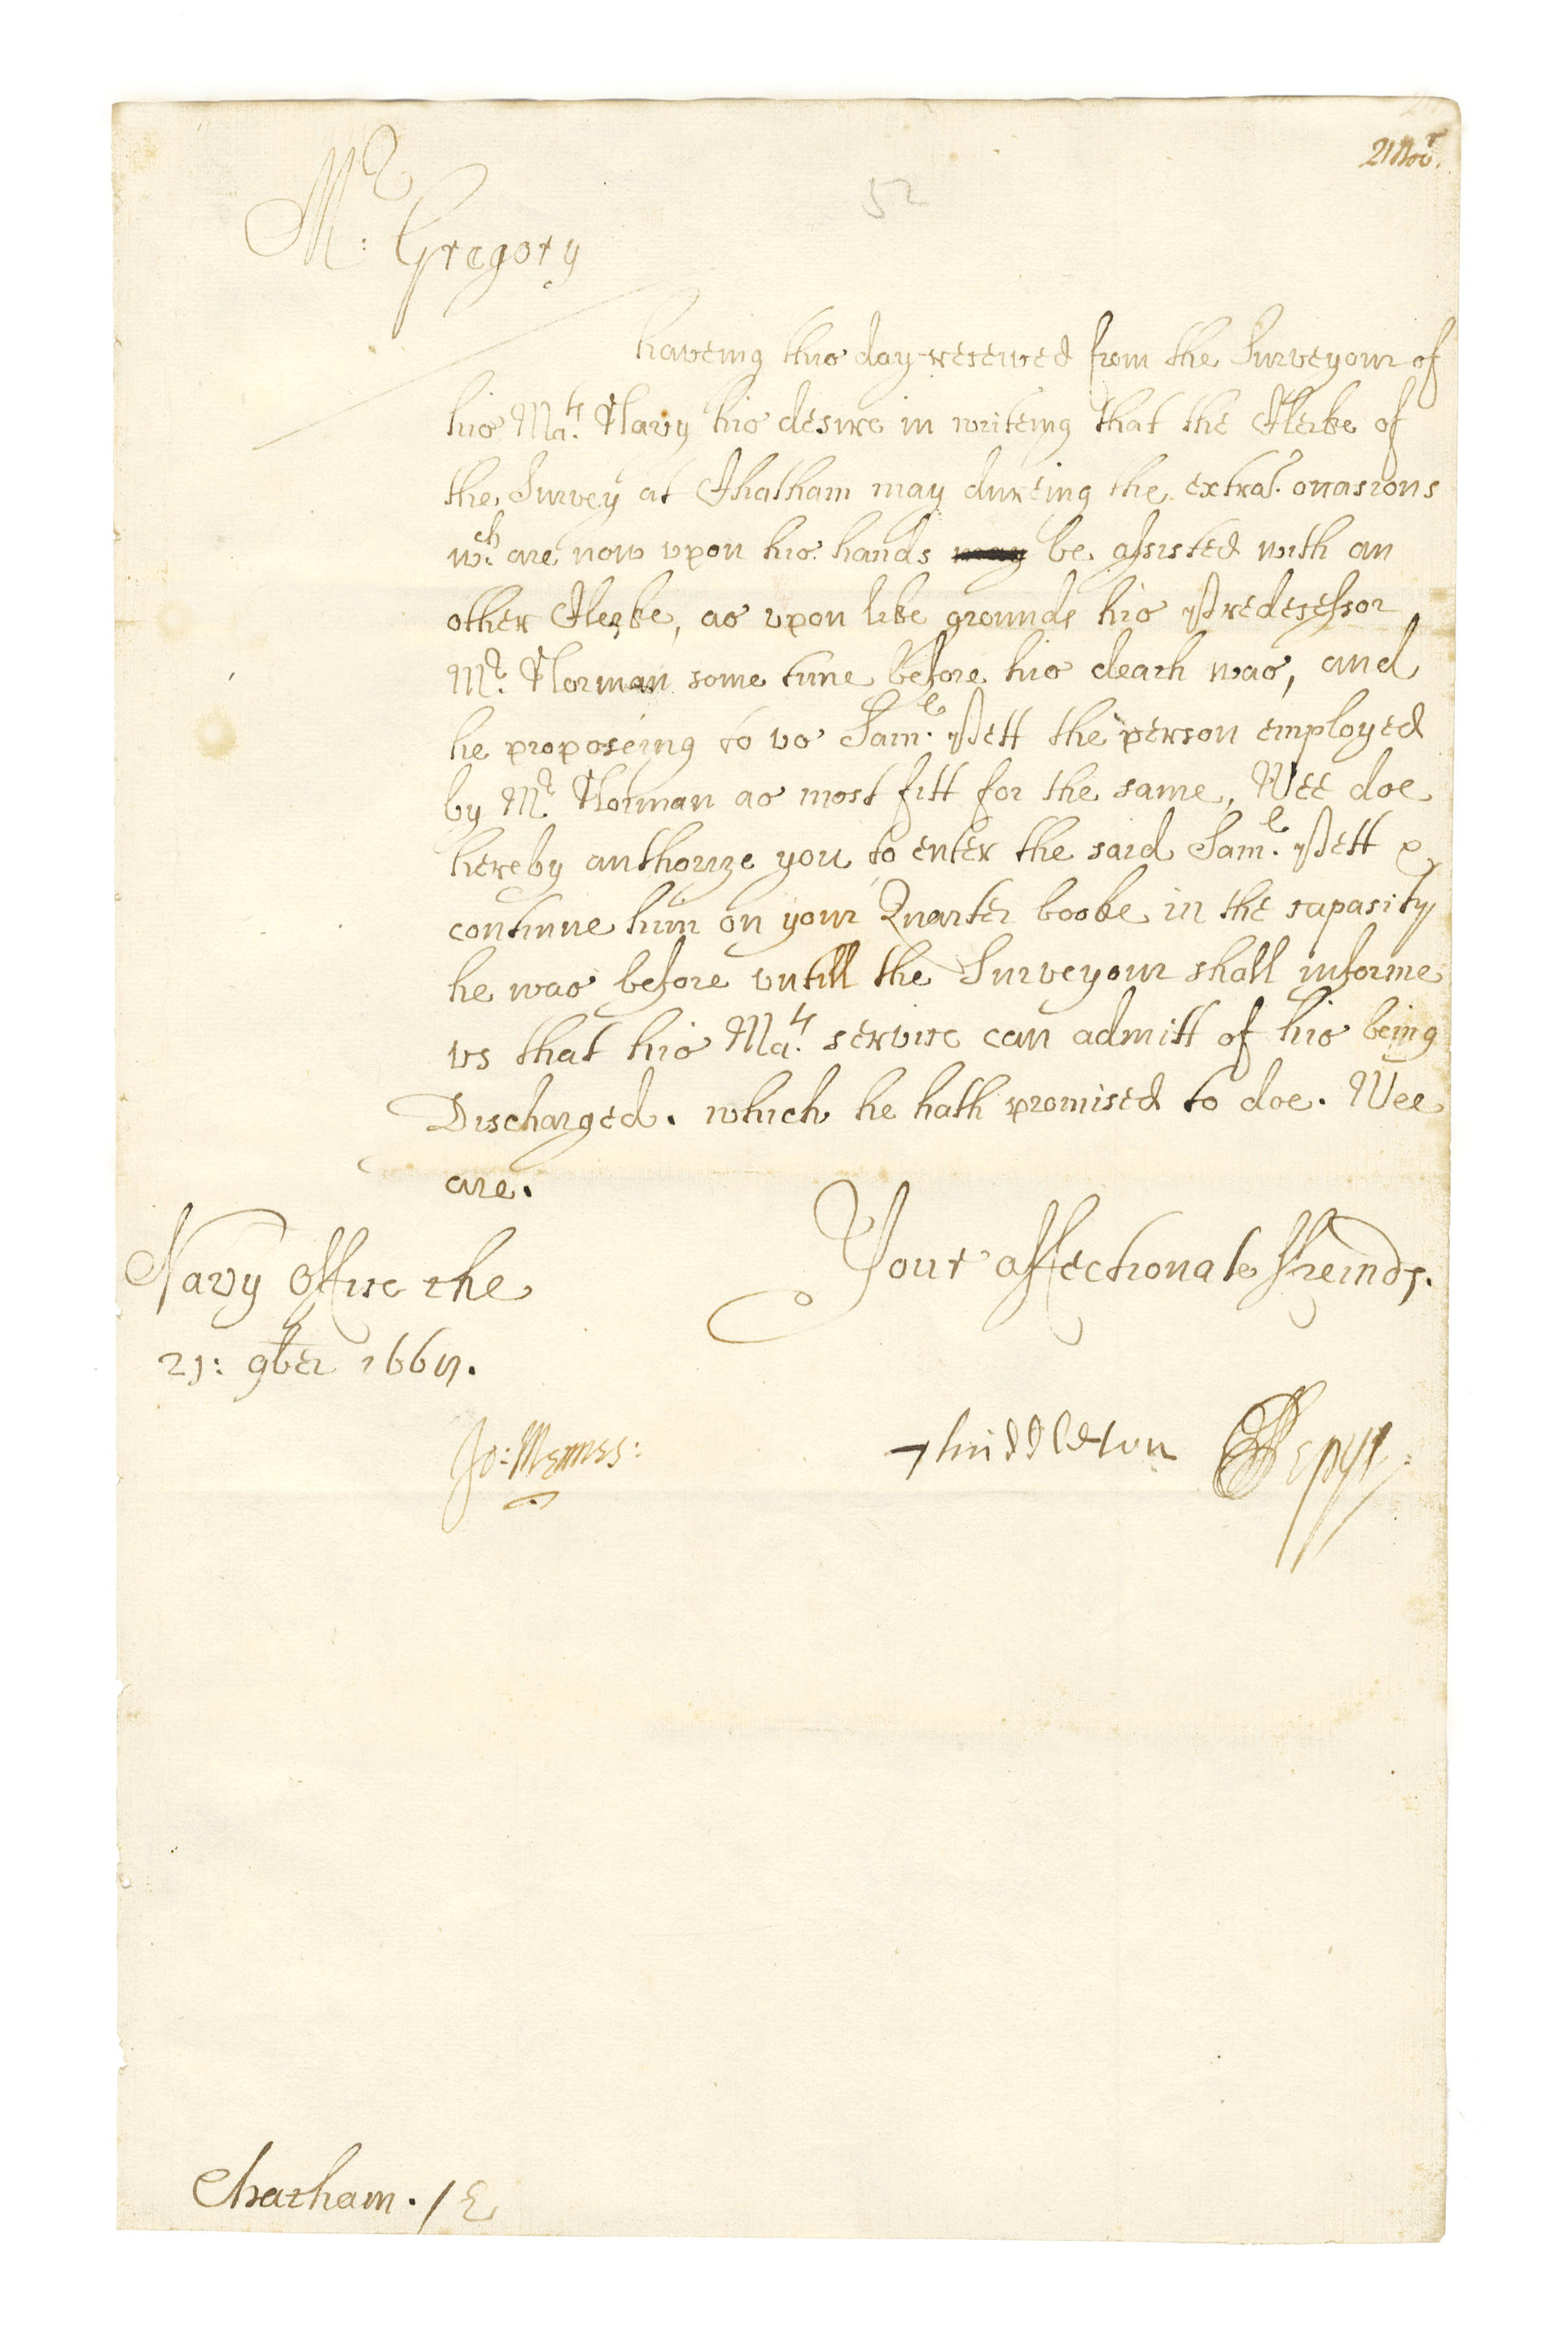 21 Nov.r
52
Mr: Gregory
haveing this day received from the Surveyour of
his Ma.ts Navy his desire in writeing that the Clerke of
the Survey at Chatham may dureing the extra.ry occasions
w.ch are now vpon his hands may be assisted with an
other Clerke, as vpon like grounds his Predecessor
Mr. Norman some time before his death was, and
he proposeing to vs Sam.l Pett the person employed
by Mr. Norman as most fitt for the same, Wee doe
hereby authorize you to enter the said Sam.l Pett &
continue him on your Quarter booke in the capacity
he was before vntill the Surveyour shall informe
vs that his Ma.ts service can admitt of his being
Discharged. which he hath promised to doe. Wee
are.
Your affectionate ffreinds.
Navy Office the
21: 9ber 1667.
Jo: Mennes:
TMiddleton SPepys:
Chatham. /